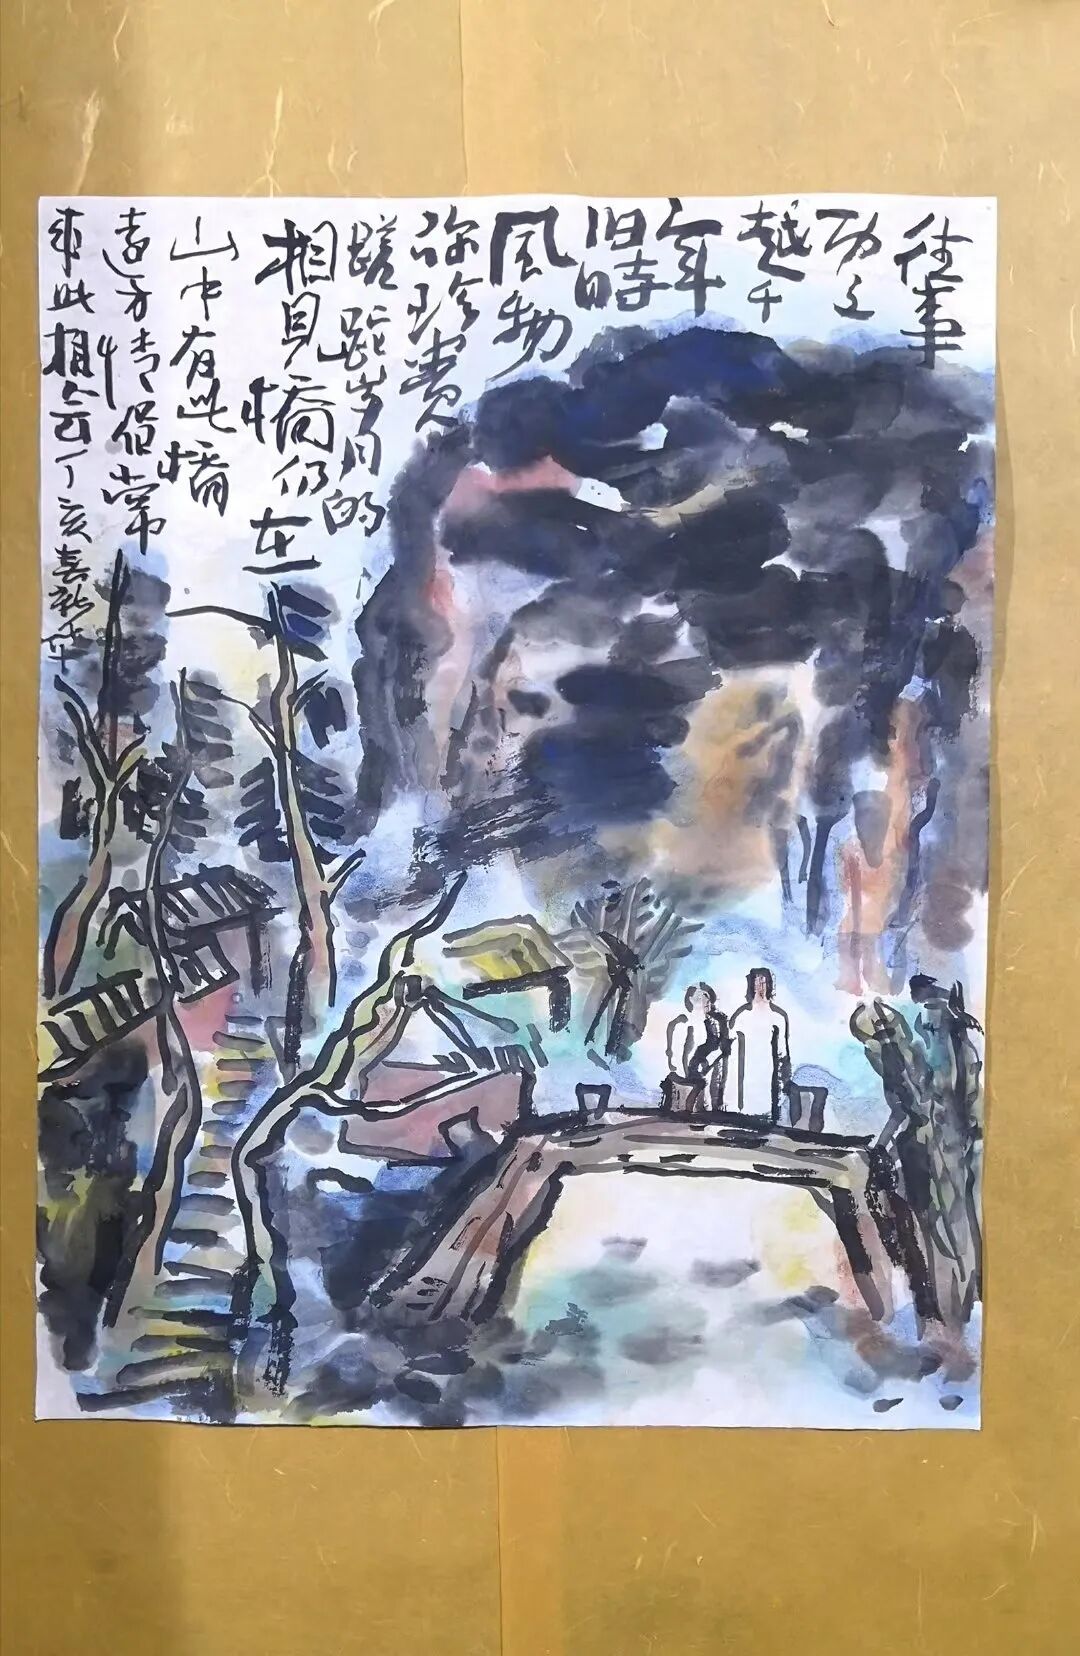 往事
功文
越千
年
旧時
風物
弥珍贵
蹉跎岁月的
相見橋仍在
山中有此橋
遠方情侣常
来此相会丁亥嘉新年